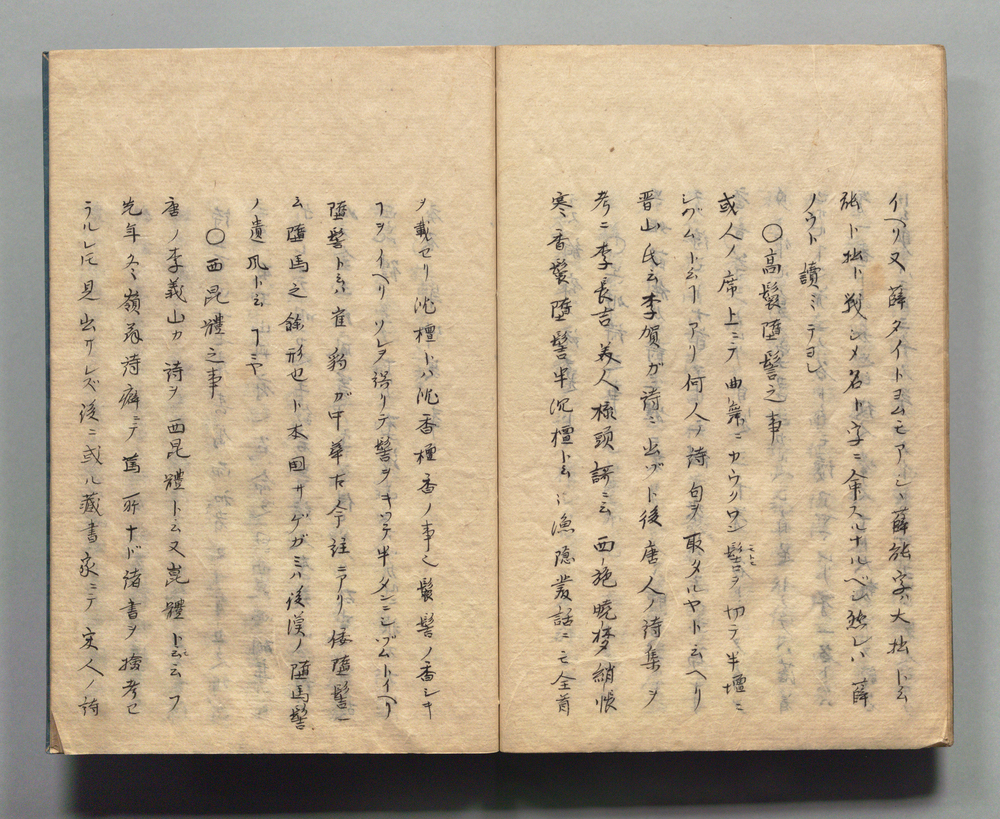 イヘリ又薛タイトヨムモアシヽ薛能字ハ大拙ト云
能ト拙ト戦シメ名ト字ニ命スルナルベシ然レハ薛
ノウト讀ミテヨシ
〇高鬟墮髻之事
或人ノ席上ニテ曲舞ニカウクワン髻ヲ切テ半壇ニ
シヅムト云ヿアリ何人ノ詩句ヲ取タルヤト云ヘリ
晋山氏云李賀ガ詩ニ出ヅト後唐人ノ詩集ヲ
考ニ李長吉美人梳頭謌ニ云西施曉夢綃悵
寒香鬟墮髻半沉檀ト云ニ漁隠叢話ニモ全首
ヲ載セリ沈檀ハ沈香檀香ノ事也鬟髻ノ香シキ
ヿヲイヘリソレヲ誤リテ髻ヲキツテ半ダンニシヅムトイヘリ
墮髻ト云ハ崔豹ガ中華古今註ニアリ倭墮髻一
云墮馬之餘形也ト本国サゲガミハ後漢ノ墮馬髻
ノ遺風ト云ヿニヤ
〇西昆體之事
唐ノ李義山カ詩ヲ西昆體ト云又崑體ト云フ
先年冬嶺翁詩癖ニテ篤所ナド諸書ヲ捡考セ
ラルレ𪜈見出サレズ後ニ或ル藏書家ニテ宋人ノ詩